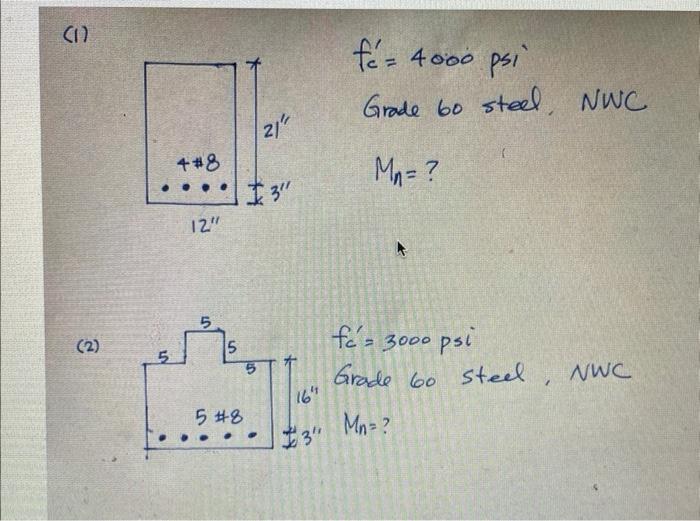 (1)
fc'= 4000 psi
Grade 60 steel, NWC
21"
4#8
Mn= ?
3"
12"
(2)
5
5
5
5
fc'= 3000 psi
Grade 60 steel, NWC
16"
5 #8
Mn= ?
3"